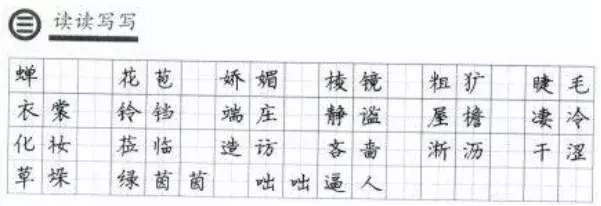 三 读读写写
蝉 花苞 娇媚 棱镜 粗犷 睫毛
衣裳 铃铛 端庄 静谧 屋檐 凄冷
化妆 莅临 造访 吝啬 淅沥 干涩
草垛 绿茵茵 咄咄逼人